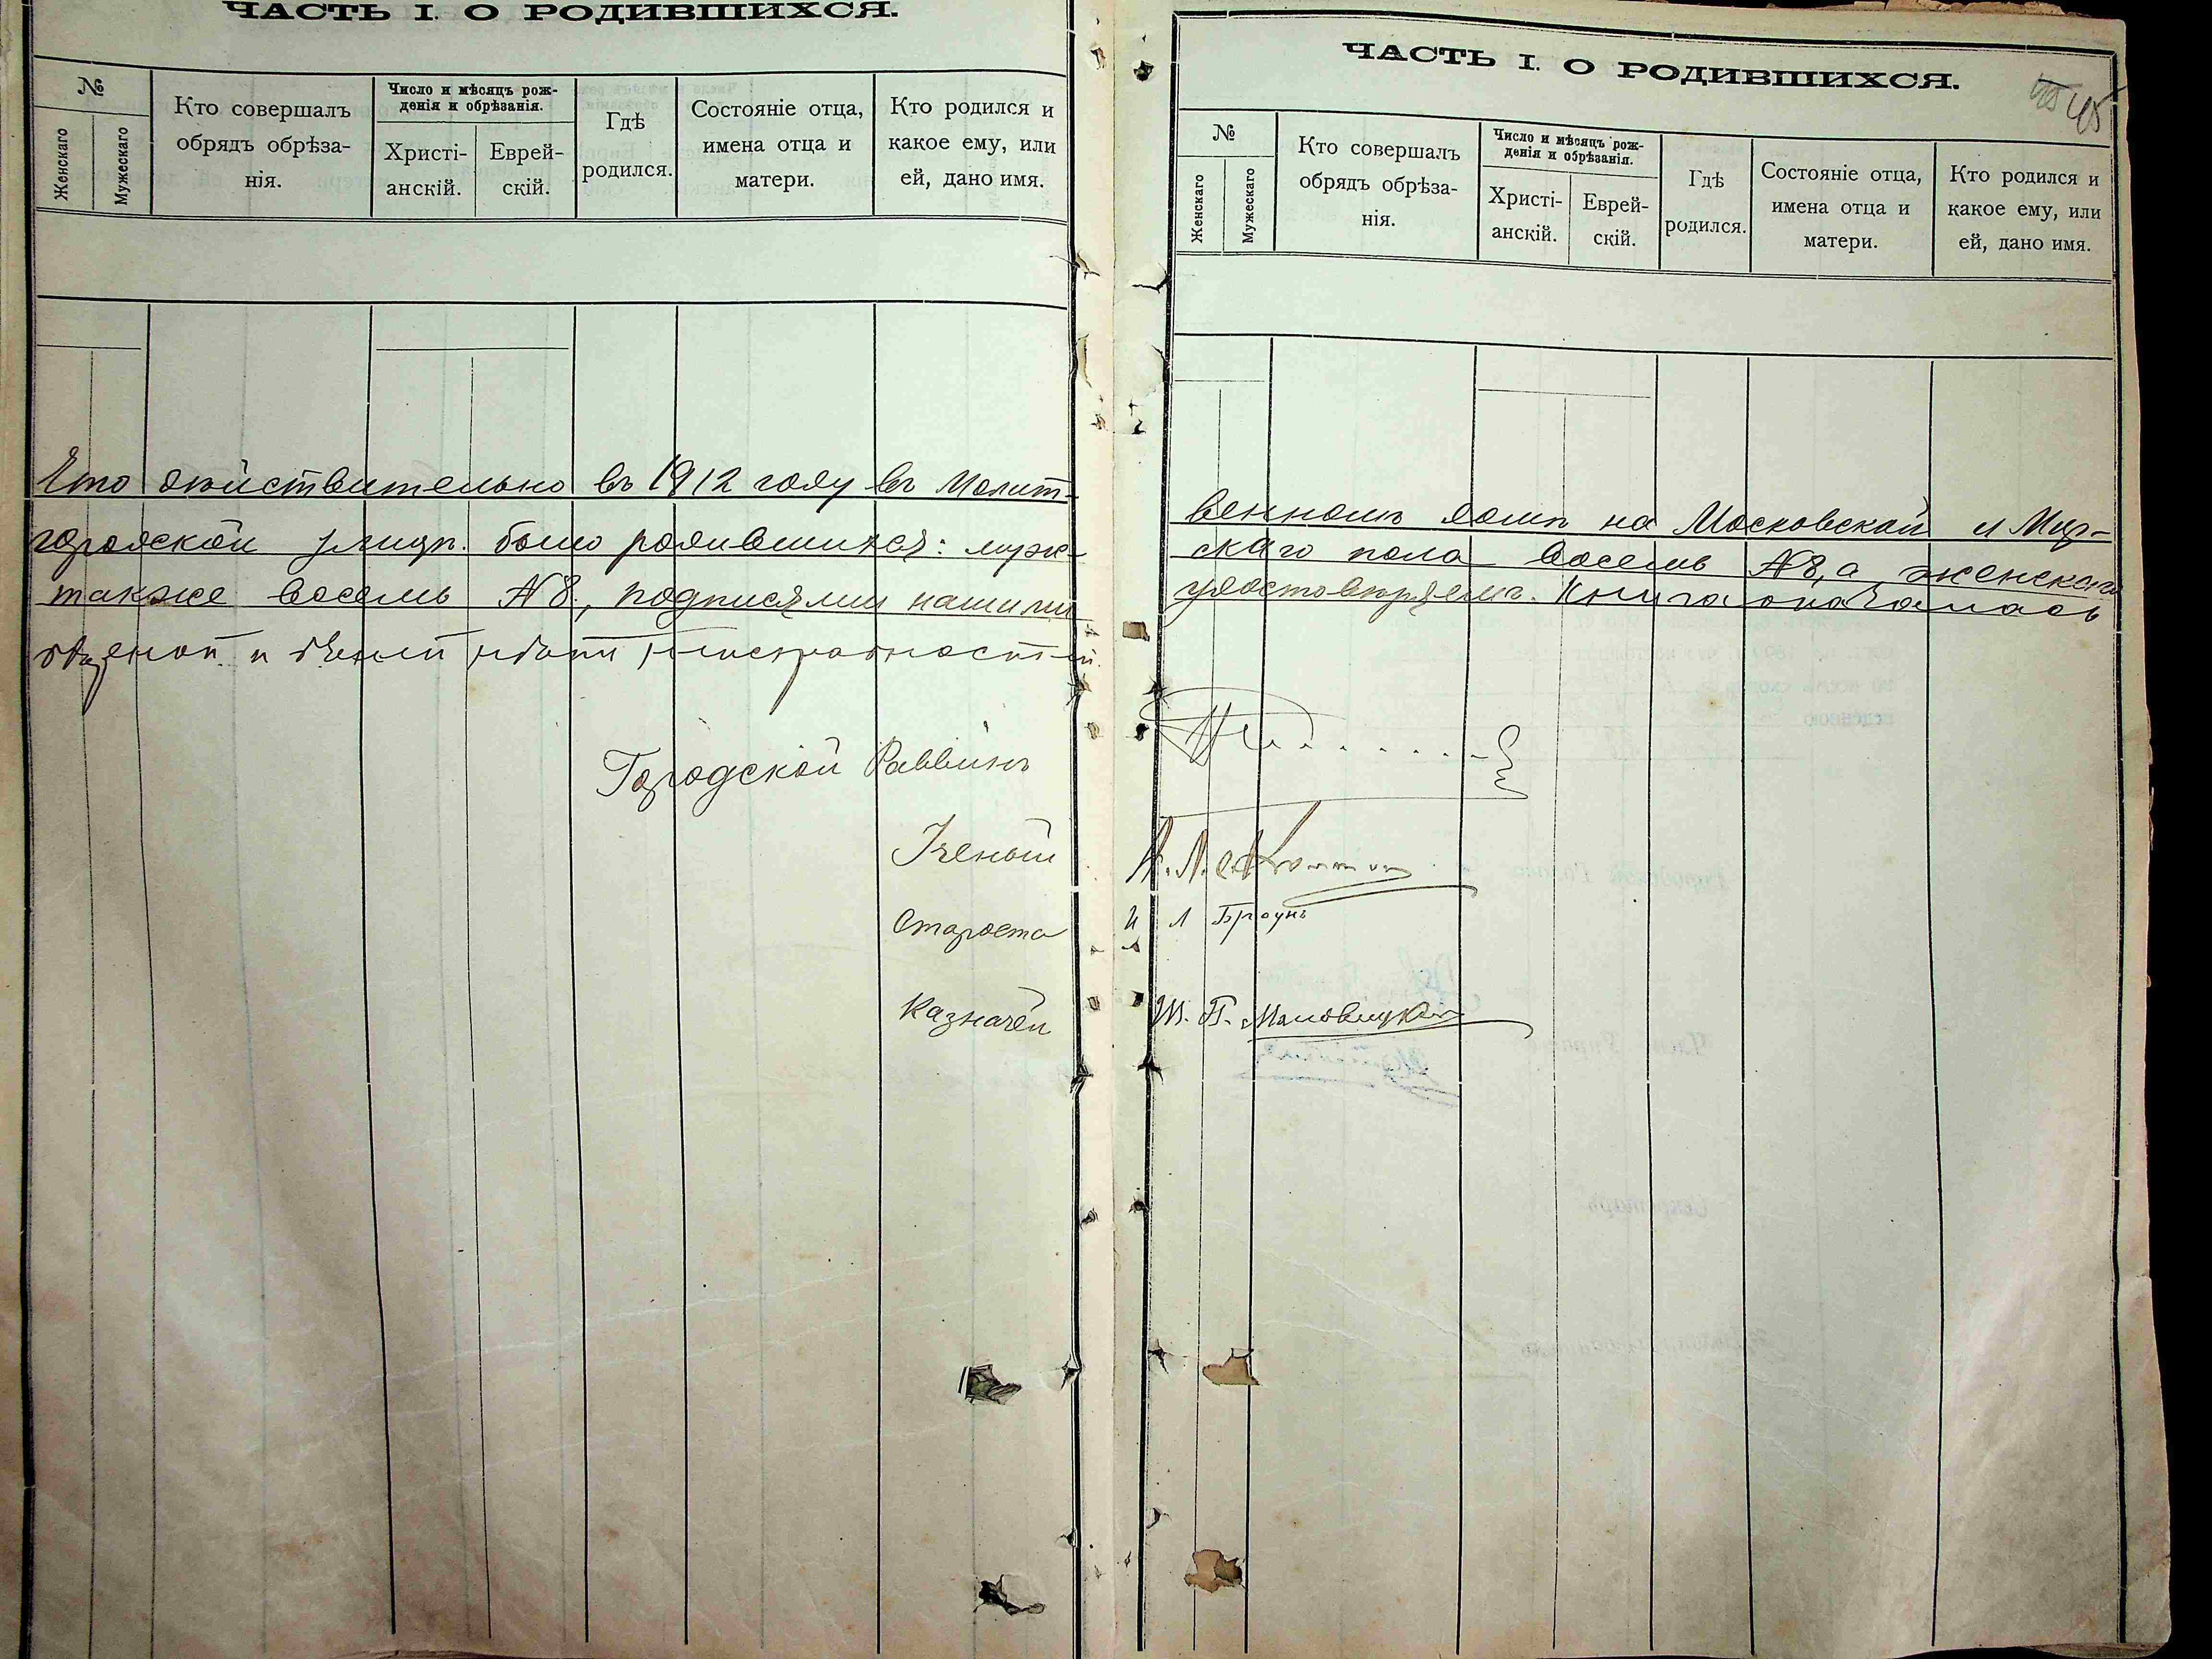 ЧАСТЬ I. О РОДИВШИХСЯ.
№
Женскаго
Мужескаго
Кто совершалъ
обрядъ обрѣза-
нія.
Число и мѣсяцъ рож-
денія и обрѣзанія.
Христі-
анскій.
Еврей-
скій.
Гдѣ
родился.
Состояніе отца,
имена отца и
матери.
Кто родился и
какое ему, или
ей, дано имя.
Что дѣйствительно въ 1912 году въ Молит-
городской улицѣ. было родившихся: муж-
также восемь №8., подписями нашими
Городской Раввинъ
Ученый
Староста
Казначей
ЧАСТЬ I. О РОДИВШИХСЯ.
45
№
Женскаго
Мужескаго
Кто совершалъ
обрядъ обрѣза-
нія.
Число и мѣсяцъ рож-
денія и обрѣзанія.
Христі-
анскій.
Еврей-
скій.
Гдѣ
родился.
Состояніе отца,
имена отца и
матери.
Кто родился и
какое ему, или
ей, дано имя.
венномъ домѣ на Московской и Мир-
скаго пола восемь №8, а женскаго
удостовѣряемъ. Книга оказалась
И Л Броунъ
Ш. П.